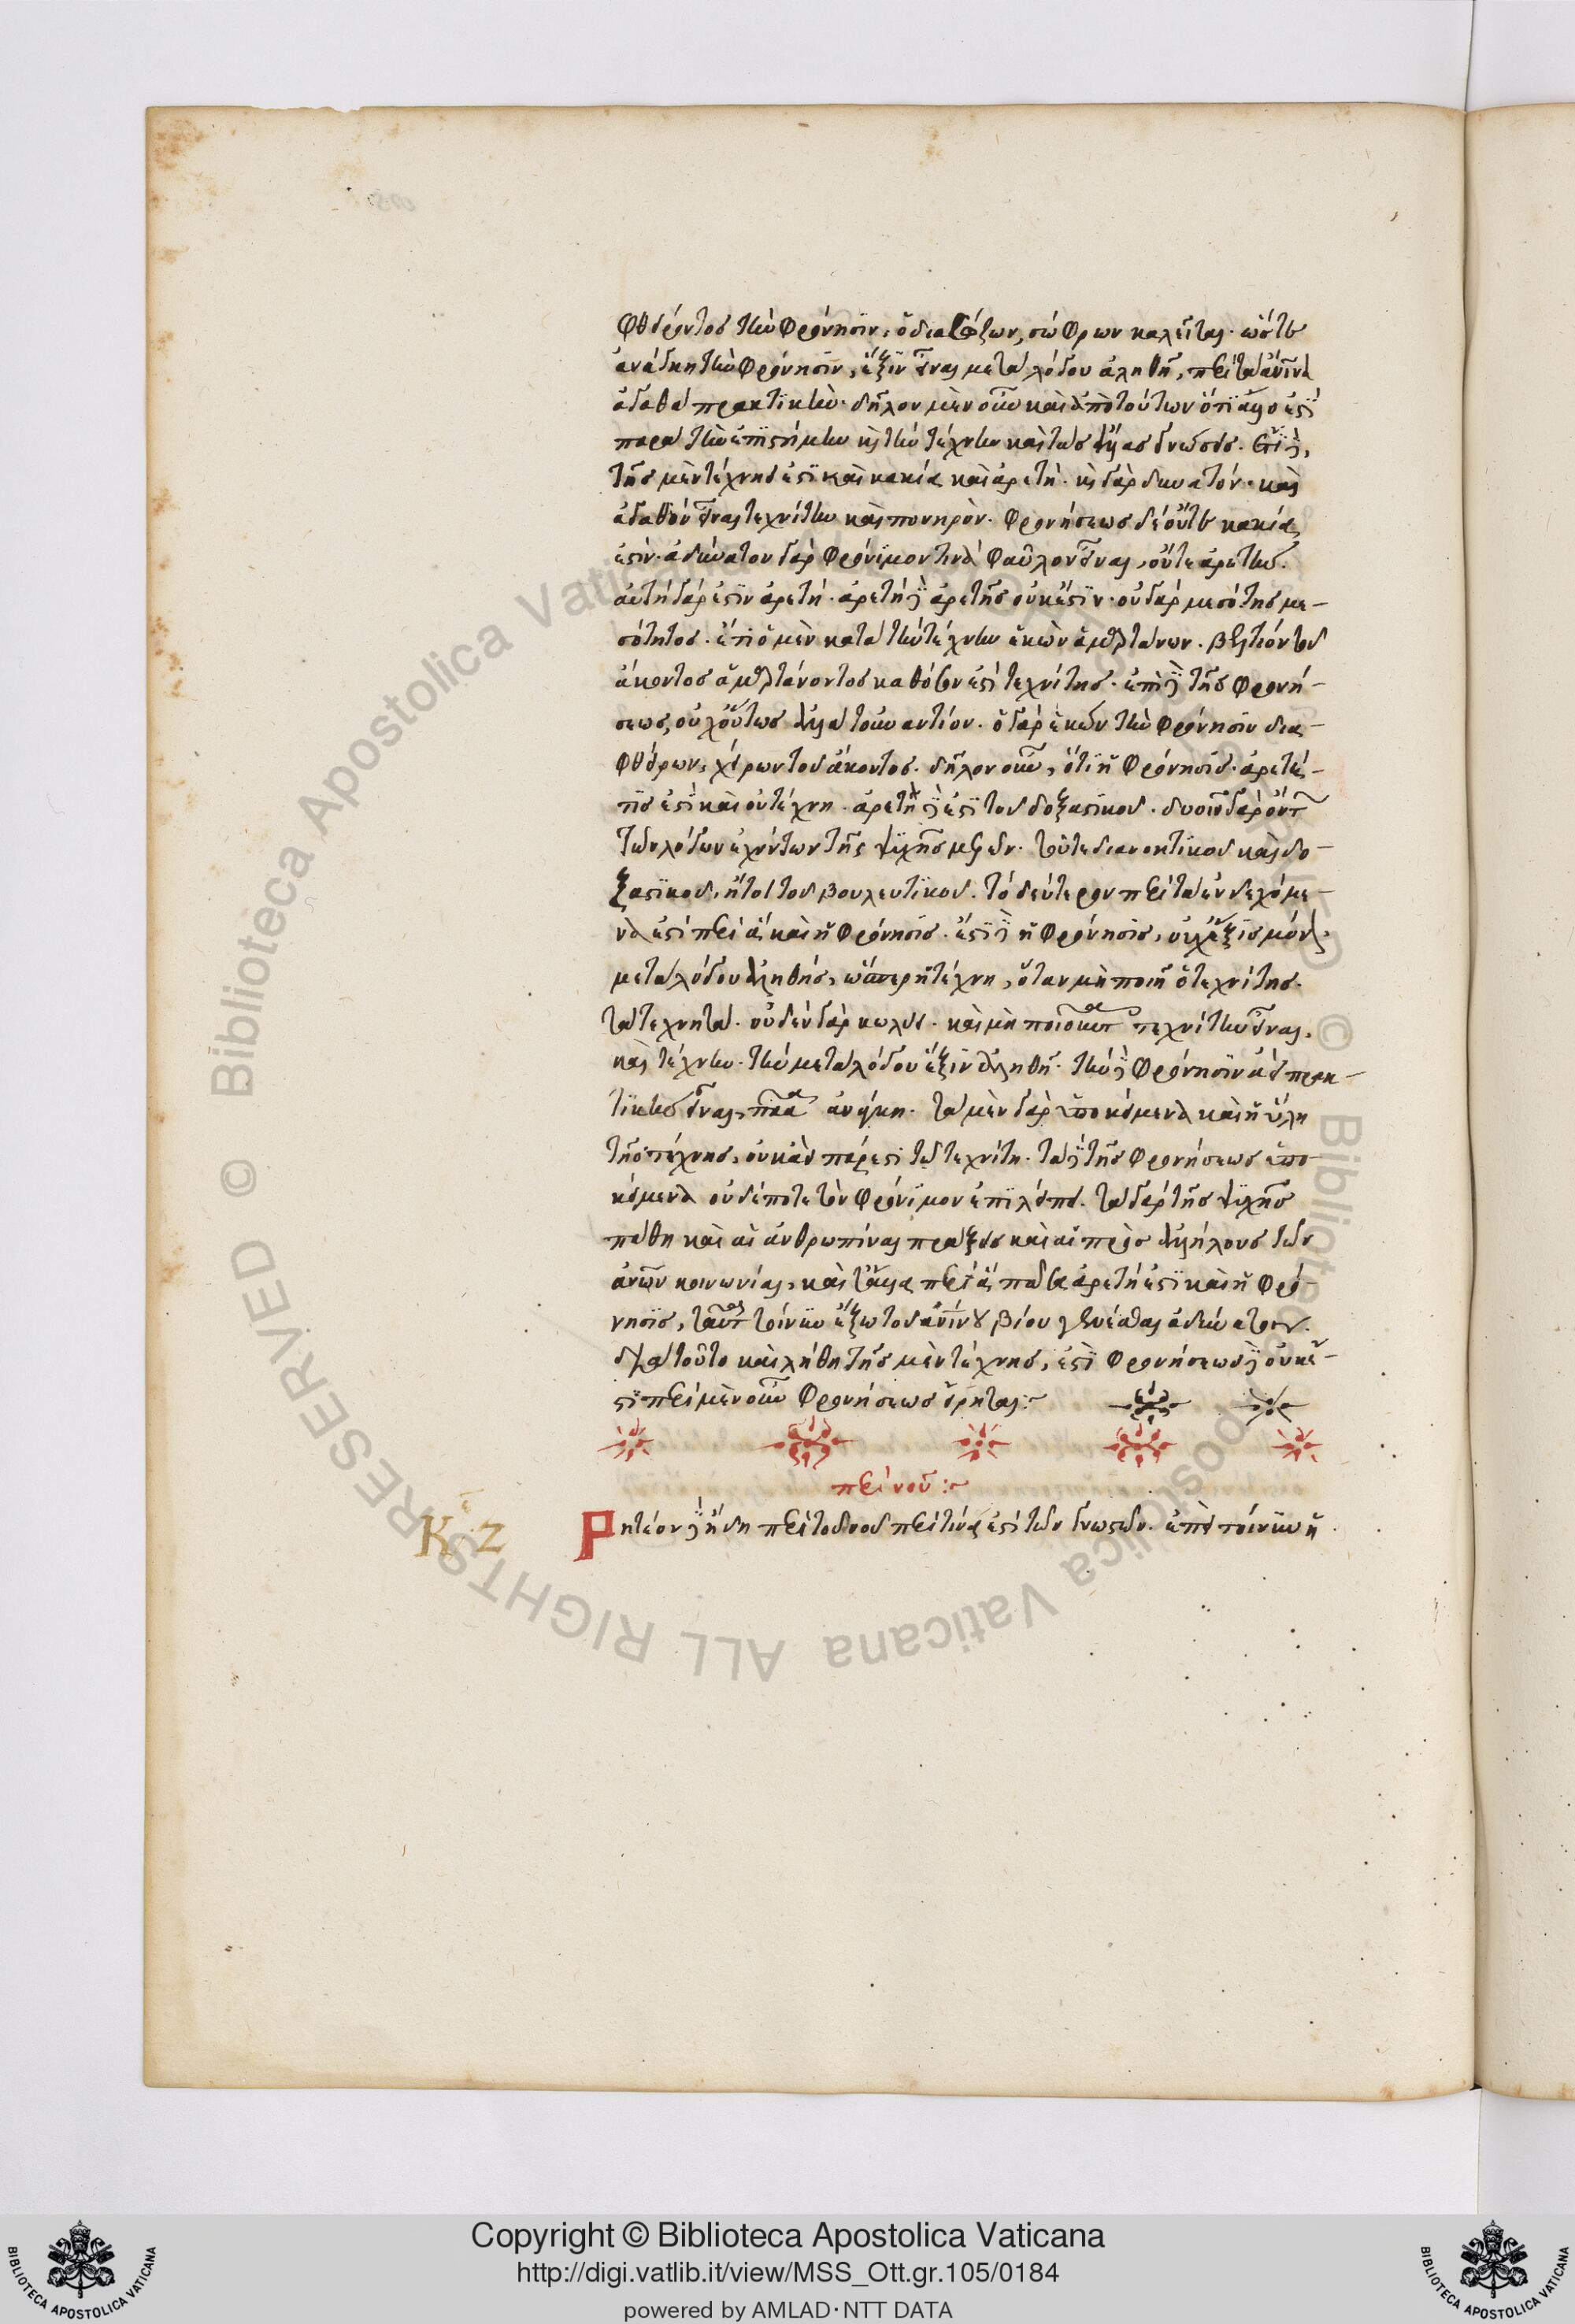 φθείροντος τὴν φρόνησιν, ὁ διασώζων, σώφρων καλεῖται· ὥστε
ἀνάγκη τὴν φρόνησιν, ἕξιν εἶναι μετὰ λόγου ἀληθῆ, περὶ τὰ ἀνινὰ
ἀγαθὰ πρακτικήν· δῆλον μὲν οὖν καὶ ἀπὸ τούτων ὅτι ἄλλο ἐστὶ
παρὰ τὴν ἐπιστήμην καὶ τὴν τέχνην καὶ τὰς ἄλλας γνώσεις. ἔτι δὲ,
τῆς μὲν τέχνης ἐστὶ καὶ κακία καὶ ἀρετή. καὶ γὰρ δυνατόν· καὶ
ἀγαθὸν εἶναι τεχνίτην καὶ πονηρόν. φρονήσεως δὲ οὔτε κακία
ἐστίν· ἀδύνατον γὰρ φρόνιμόν τινὰ φαῦλον εἶναι, οὔτε ἀρετή.
αὐτὴ γάρ ἐστιν ἀρετή· ἀρετὴ δὲ ἀρετῆς οὐκ ἔστιν· οὐ γὰρ μεσότης με-
σότητος. ἔτι ὁ μὲν κατὰ τὴν τέχνην ἑκὼν ἁμαρτάνων. βελτίων τοῦ
ἄκοντος ἁμαρτάνοντος καθόσον ἐστὶ τεχνίτης· ἐπὶ δὲ τῆς φρονή-
σεως, οὐχ οὕτως ἀλλὰ τοὐναντίον. ὁ γὰρ ἑκὼν τὴν φρόνησιν δια-
φθείρων, χείρων τοῦ ἄκοντος. δῆλον οὖν, ὅτι ἡ φρόνησις ἀρετή
τίς ἐστὶ καὶ οὐ τέχνη. ἀρετὴ δέ ἐστι τοῦ δοξαστικοῦ. δυοῖν γὰρ ὄντ
τῶν λόγον ἐχόντων τῆς ψυχῆς μερῶν· τοῦτε διανοητικοῦ καὶ δο-
ξαστικοῦ, ἤτοι τοῦ βουλευτικοῦ. τὸ δεύτερον περὶ τὰ ἐνδεχόμε-
νά ἐστι περὶ ἃ καὶ ἡ φρόνησις. ἔστι δὲ ἡ φρόνησις, οὐχ ἕξις μόνον
μετὰ λόγου ἀληθής, ὥσπερ ἡ τέχνη, ὅταν μὴ ποιῇ ὁ τεχνίτης
τὰ τεχνητά. οὐδὲν γὰρ κωλύει· καὶ μὴ ποιοῦντα τεχνίτην εἶναι,
καὶ τέχνην· τὴν μετὰ λόγου ἕξιν ἀληθῆ. τὴν δὲ φρόνησιν ἀεὶ πρακ-
τικὴν εἶναι, πᾶσα ἀνάγκη. τὰ μὲν γὰρ ὑποκείμενα καὶ ἡ ὕλη
τῆς τέχνης, οὐκ ἀεὶ πάρεστι τῷ τεχνίτῃ. τὰ δὲ τῆς φρονήσεως ὑπο-
κείμενα οὐδέποτε τὸν φρόνιμον ἐπιλείπει. τὰ γὰρ τῆς ψυχῆς
πάθη καὶ αἱ ἀνθρωπίναι πράξεις καὶ αἱ πρὸς ἀλλήλους τῶν
ἀνων κοινωνίαι, καὶ τἆλλα περὶ ἃ πᾶσα ἀρετή ἐστι καὶ ἡ φρό-
νησις, ταῦτα τοίνυν ἔξω τοῦ ἀνινου βίου γενέσθαι ἀδύνατον.
διὰ τοῦτο καὶ λήθη τῆς μὲν τέχνης, ἐστὶ φρονήσεως δὲ οὐκ ἔ-
στι περὶ μὲν οὖν φρονήσεως εἴρηται:~
περὶ νοῦ:~
Κ. Ζ
Ρητέον δὲ ἤδη περὶ τοῦ νοῦ περὶ τίνα ἐστὶ τῶν γνωστῶν. ἐπεὶ τοίνυν ἡ
Copyright © Biblioteca Apostolica Vaticana
http://digi.vatlib.it/view/MSS_Ott.gr.105/0184
powered by AMLAD·NTT DATA
BIBLIOTECA APOSTOLICA VATICANA
BIBLIOTECA APOSTOLICA VATICANA
© Biblioteca Apostolica Vaticana ALL RIGHTS RESERVED